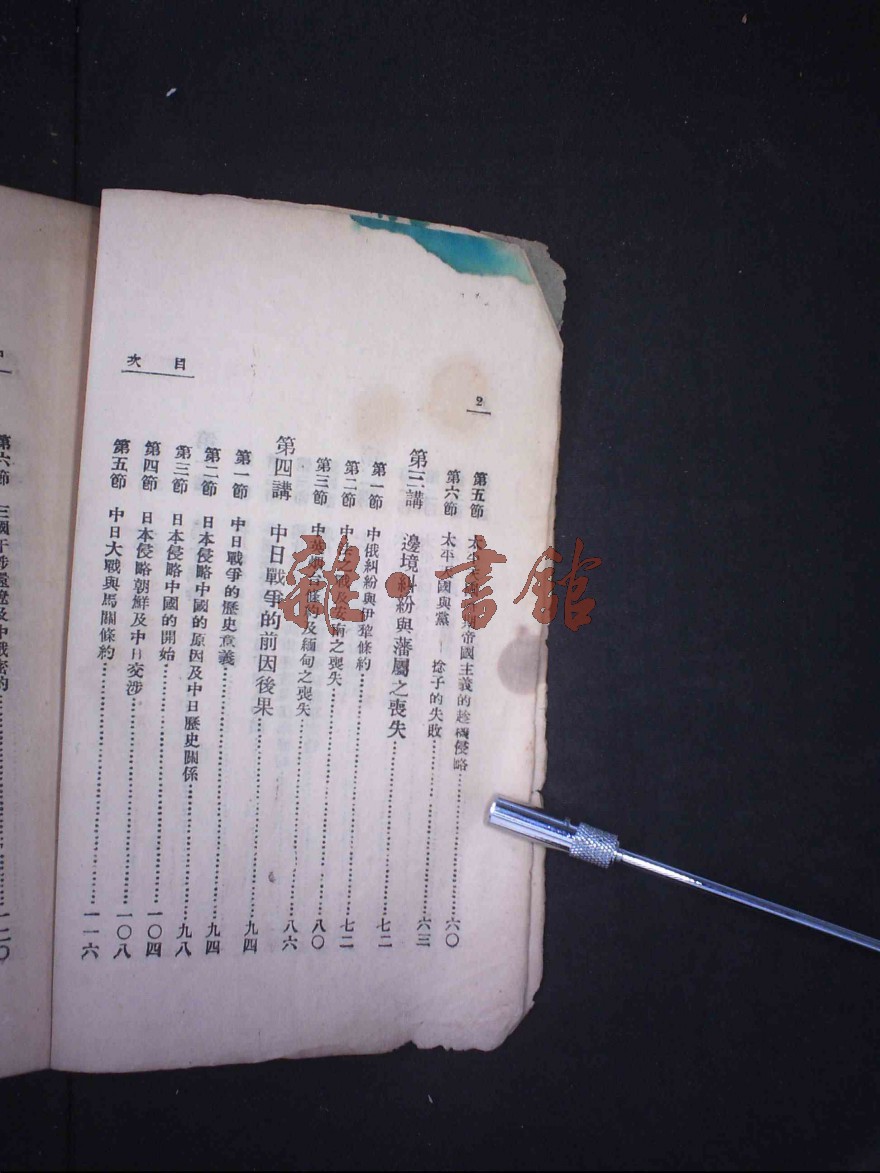 2
目次
第五節 太平 帝國主義的趁機侵略……六〇
第六節 太平天國與黨——捻子的失敗……六三
第三講 邊境糾紛與藩屬之喪失……七二
第一節 中俄糾紛與伊犂條約……七二
第二節 中法之戰及安南之喪失……八〇
第三節 中英煙台條約及緬甸之喪失……八六
第四講 中日戰爭的前因後果……九四
第一節 中日戰爭的歷史意義……九四
第二節 日本侵略中國的原因及中日歷史關係……九八
第三節 日本侵略中國的開始……一〇四
第四節 日本侵略朝鮮及中日交涉……一〇八
第五節 中日大戰與馬關條約……一一六
第六節 三國干涉還遼及中俄密約……一二〇
雜·書館